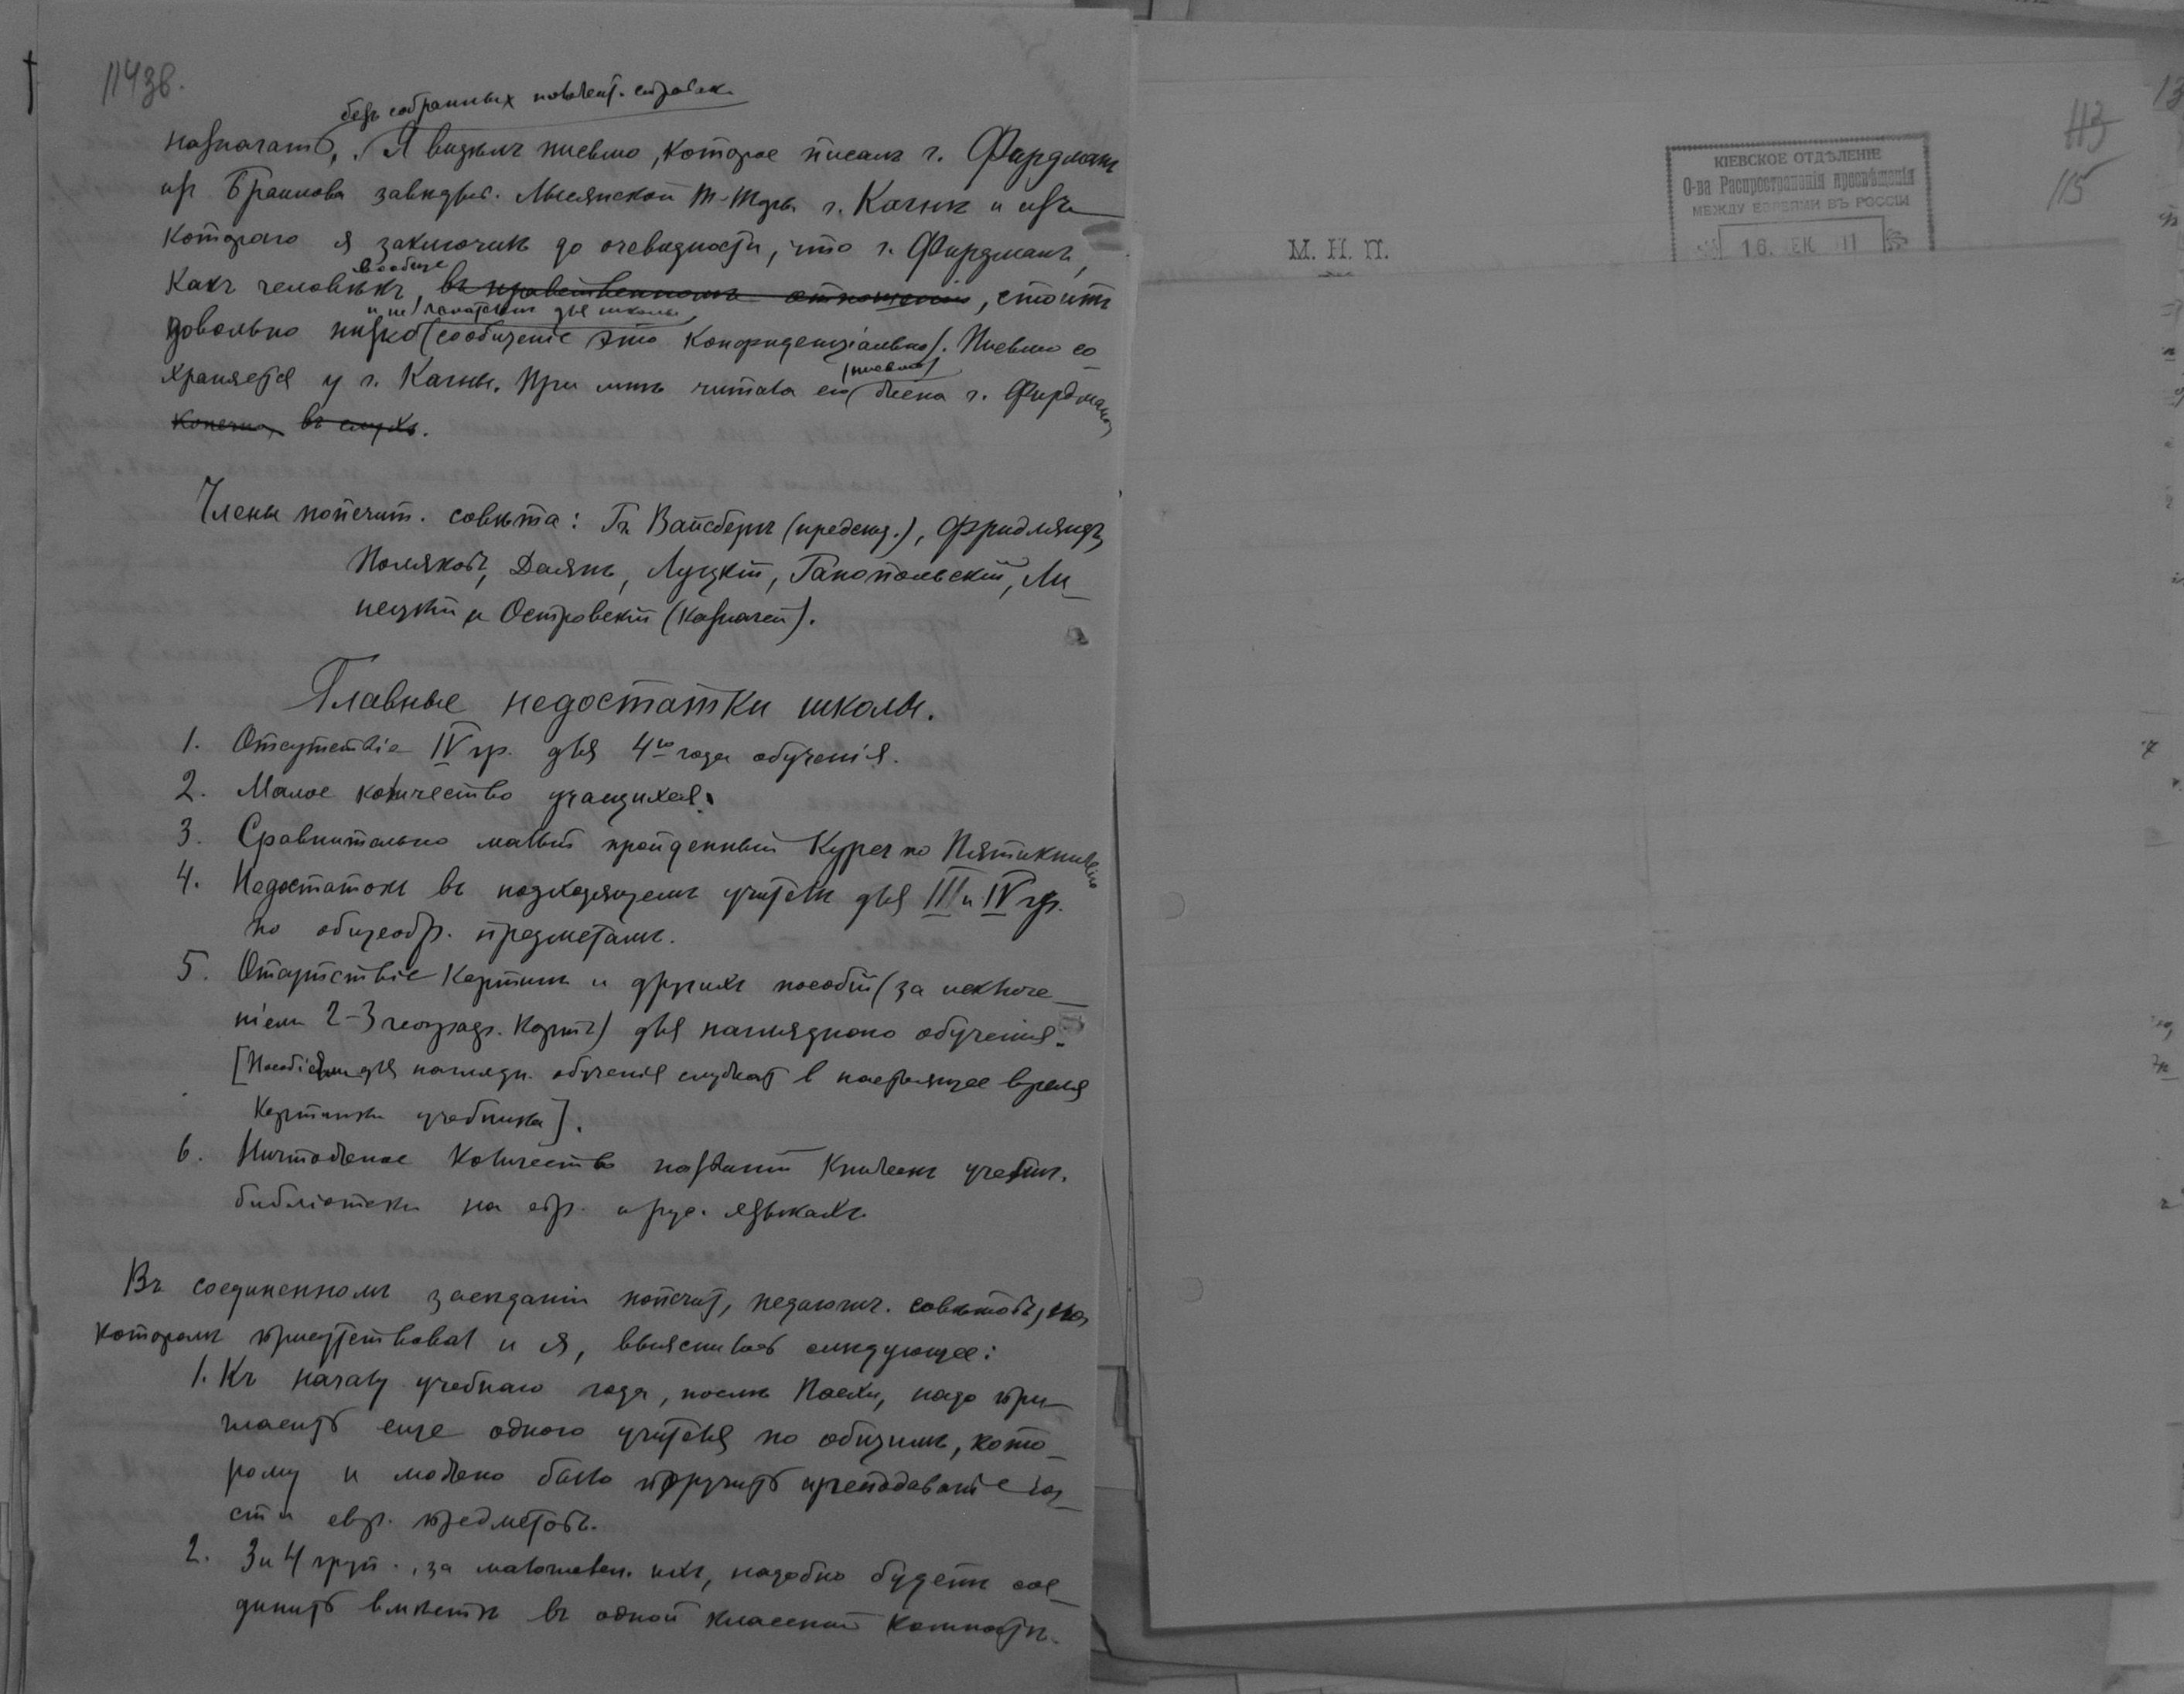 114 зв.
безъ собранныхъ справок
назначать, Я видѣлъ письмо, которое писалъ г. Фирдманъ
изъ Браилова завѣдыв. Лысянской Т-Торы г. Качнъ и изъ
котораго я заключилъ до очевидности, что г. Фирдманъ,
вообще
какъ человѣкъ, въ нравственномъ отношеніи, стоитъ
и не для школы,
довольно низко (сообщеніе это конфиденціально). Письмо со-
(письмо)
храняется у г. Качны. При мнѣ читала его жена г. Фирдмана,
конечно, въ слухъ.
Члены попечит. совѣта: Гг. Вайсбергъ (предсѣд.), Фридляндъ,
Поляковъ, Далянъ, Луцкій, Ганопольскій, Ли-
нецкій и Островскій (казначей).
Главные недостатки школы.
1. Отсутствіе IV гр. для 4го года обученія.
2. Малое количество учащихся.
3. Сравнительно малый пройденный курсъ по Пятикнижію
4. Недостатокъ въ подходящемъ учителѣ для III и IV гр.
по общеобр. предметамъ.
5. Отсутствіе картинъ и другихъ пособій (за исключе-
ніемъ 2-3 географ. картъ) для нагляднаго обученія.
[Пособіями для наглядн. обученія служат в настоящее время
картинки учебника].
6. Ничтожное количество названій книжекъ учебн.
библіотеки на евр. и рус. языкахъ
Въ соединенномъ засѣданіи попечит, педагогич. совѣтовъ, на
которомъ присутствовал и я, выяснилось слѣдующее:
1. Къ началу учебнаго года, послѣ Пасхи, надо при-
гласить еще одного учителя по общимъ, кото-
рому и можно было поручить преподаваніе ча-
сти евр. предметовъ.
2. 3 и 4 груп., за малочислен. ихъ, надобно будетъ сое-
динить вмѣстѣ въ одной классной комнатѣ.
113
115
КІЕВСКОЕ ОТДѢЛЕНІЕ
О-ва Распространенія просвѣщенія
МЕЖДУ ЕВРЕЯМИ ВЪ РОССІИ
16. ДЕК. 911
М. Н. П.